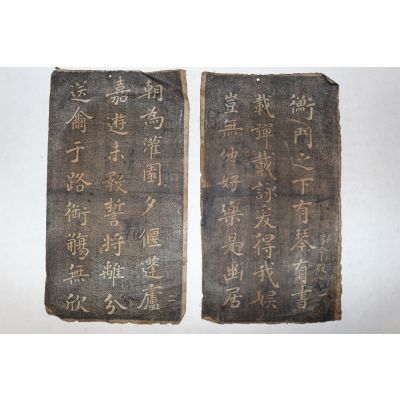 衡門之下有琴有書
載彈載詠爰得我娛
豈無他好樂是幽居
朝為灌園夕偃蓬廬
二
嘉遊未斁誓將離分
送爾于路銜觴無欣